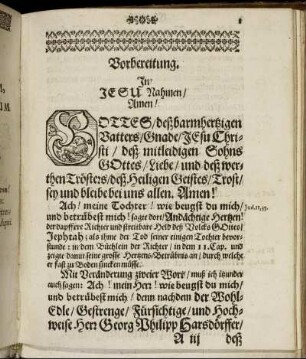 1
Vorbereitung.
In
JESU Nahmen/
Amen!
GOTTES/ deß barmhertzigen
Vatters/ Gnade/ JEsu Chri-
sti/ deß mitleidigen Sohns
GOttes/ Liebe/ und deß wer-
then Trösters/ deß Heiligen Geistes/ Trost/
sey und bleibe bei uns allen. Amen!
Ach! meine Tochter! wie beugst du mich/
und betrübest mich! sagte dort/ Andächtige Hertzen!
der dapffere Richter und streitbare Held deß Volcks GOttes/
Jephtah: als ihme der Tod seiner einigen Tochter bevor-
stunde: in dem Büchlein der Richter/ in dem 11. Cap. und
zeigte damit seine grosse Hertzens-Betrübnis an/ durch welche
er fast zu Boden sincken müsse.
Mit Veränderung zweier Wort/ muß ich itzunder
auch sagen: Ach! mein Herr! wie beugst du mich/
und betrübest mich! denn nachdem der Wohl-
Edle/ Gestrenge/ Fürsichtige/ und Hoch-
weise Herr Georg Philipp Harsdörffer/
A iij deß